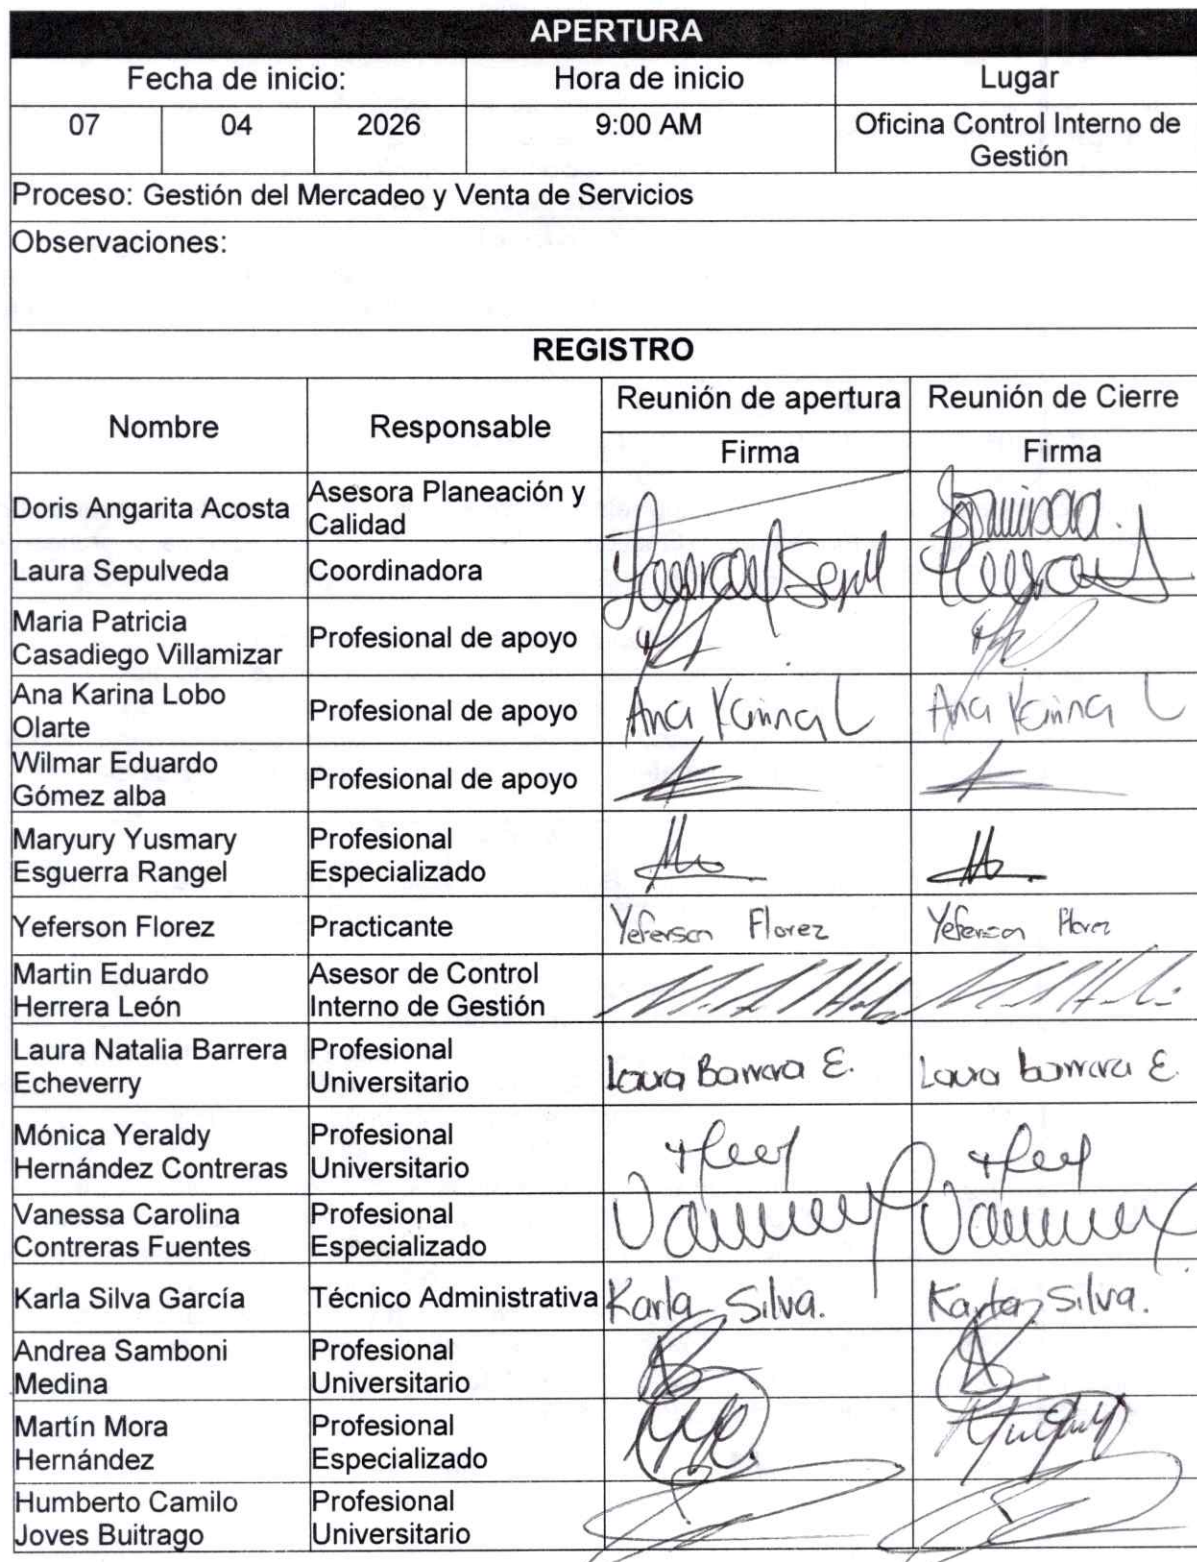 APERTURA
Fecha de inicio: Hora de inicio Lugar
07 04 2026 9:00 AM Oficina Control Interno de
Gestión
Proceso: Gestión del Mercadeo y Venta de Servicios
Observaciones:
REGISTRO
Nombre Responsable Reunión de apertura Reunión de Cierre
Firma Firma
Doris Angarita Acosta Asesora Planeación y
Calidad
Laura Sepulveda Coordinadora
Maria Patricia
Casadiego Villamizar Profesional de apoyo
Ana Karina Lobo
Olarte Profesional de apoyo Ana Karina L Ana Karina L
Wilmar Eduardo
Gómez alba Profesional de apoyo
Maryury Yusmary
Esguerra Rangel Profesional
Especializado
Yeferson Florez Practicante Yeferson Florez Yeferson Florez
Martin Eduardo
Herrera León Asesor de Control
Interno de Gestión
Laura Natalia Barrera
Echeverry Profesional
Universitario Laura Barrera E. Laura barrera E.
Mónica Yeraldy
Hernández Contreras Profesional
Universitario
Vanessa Carolina
Contreras Fuentes Profesional
Especializado
Karla Silva García Técnico Administrativa Karla Silva. Karla Silva.
Andrea Samboni
Medina Profesional
Universitario
Martín Mora
Hernández Profesional
Especializado
Humberto Camilo
Joves Buitrago Profesional
Universitario